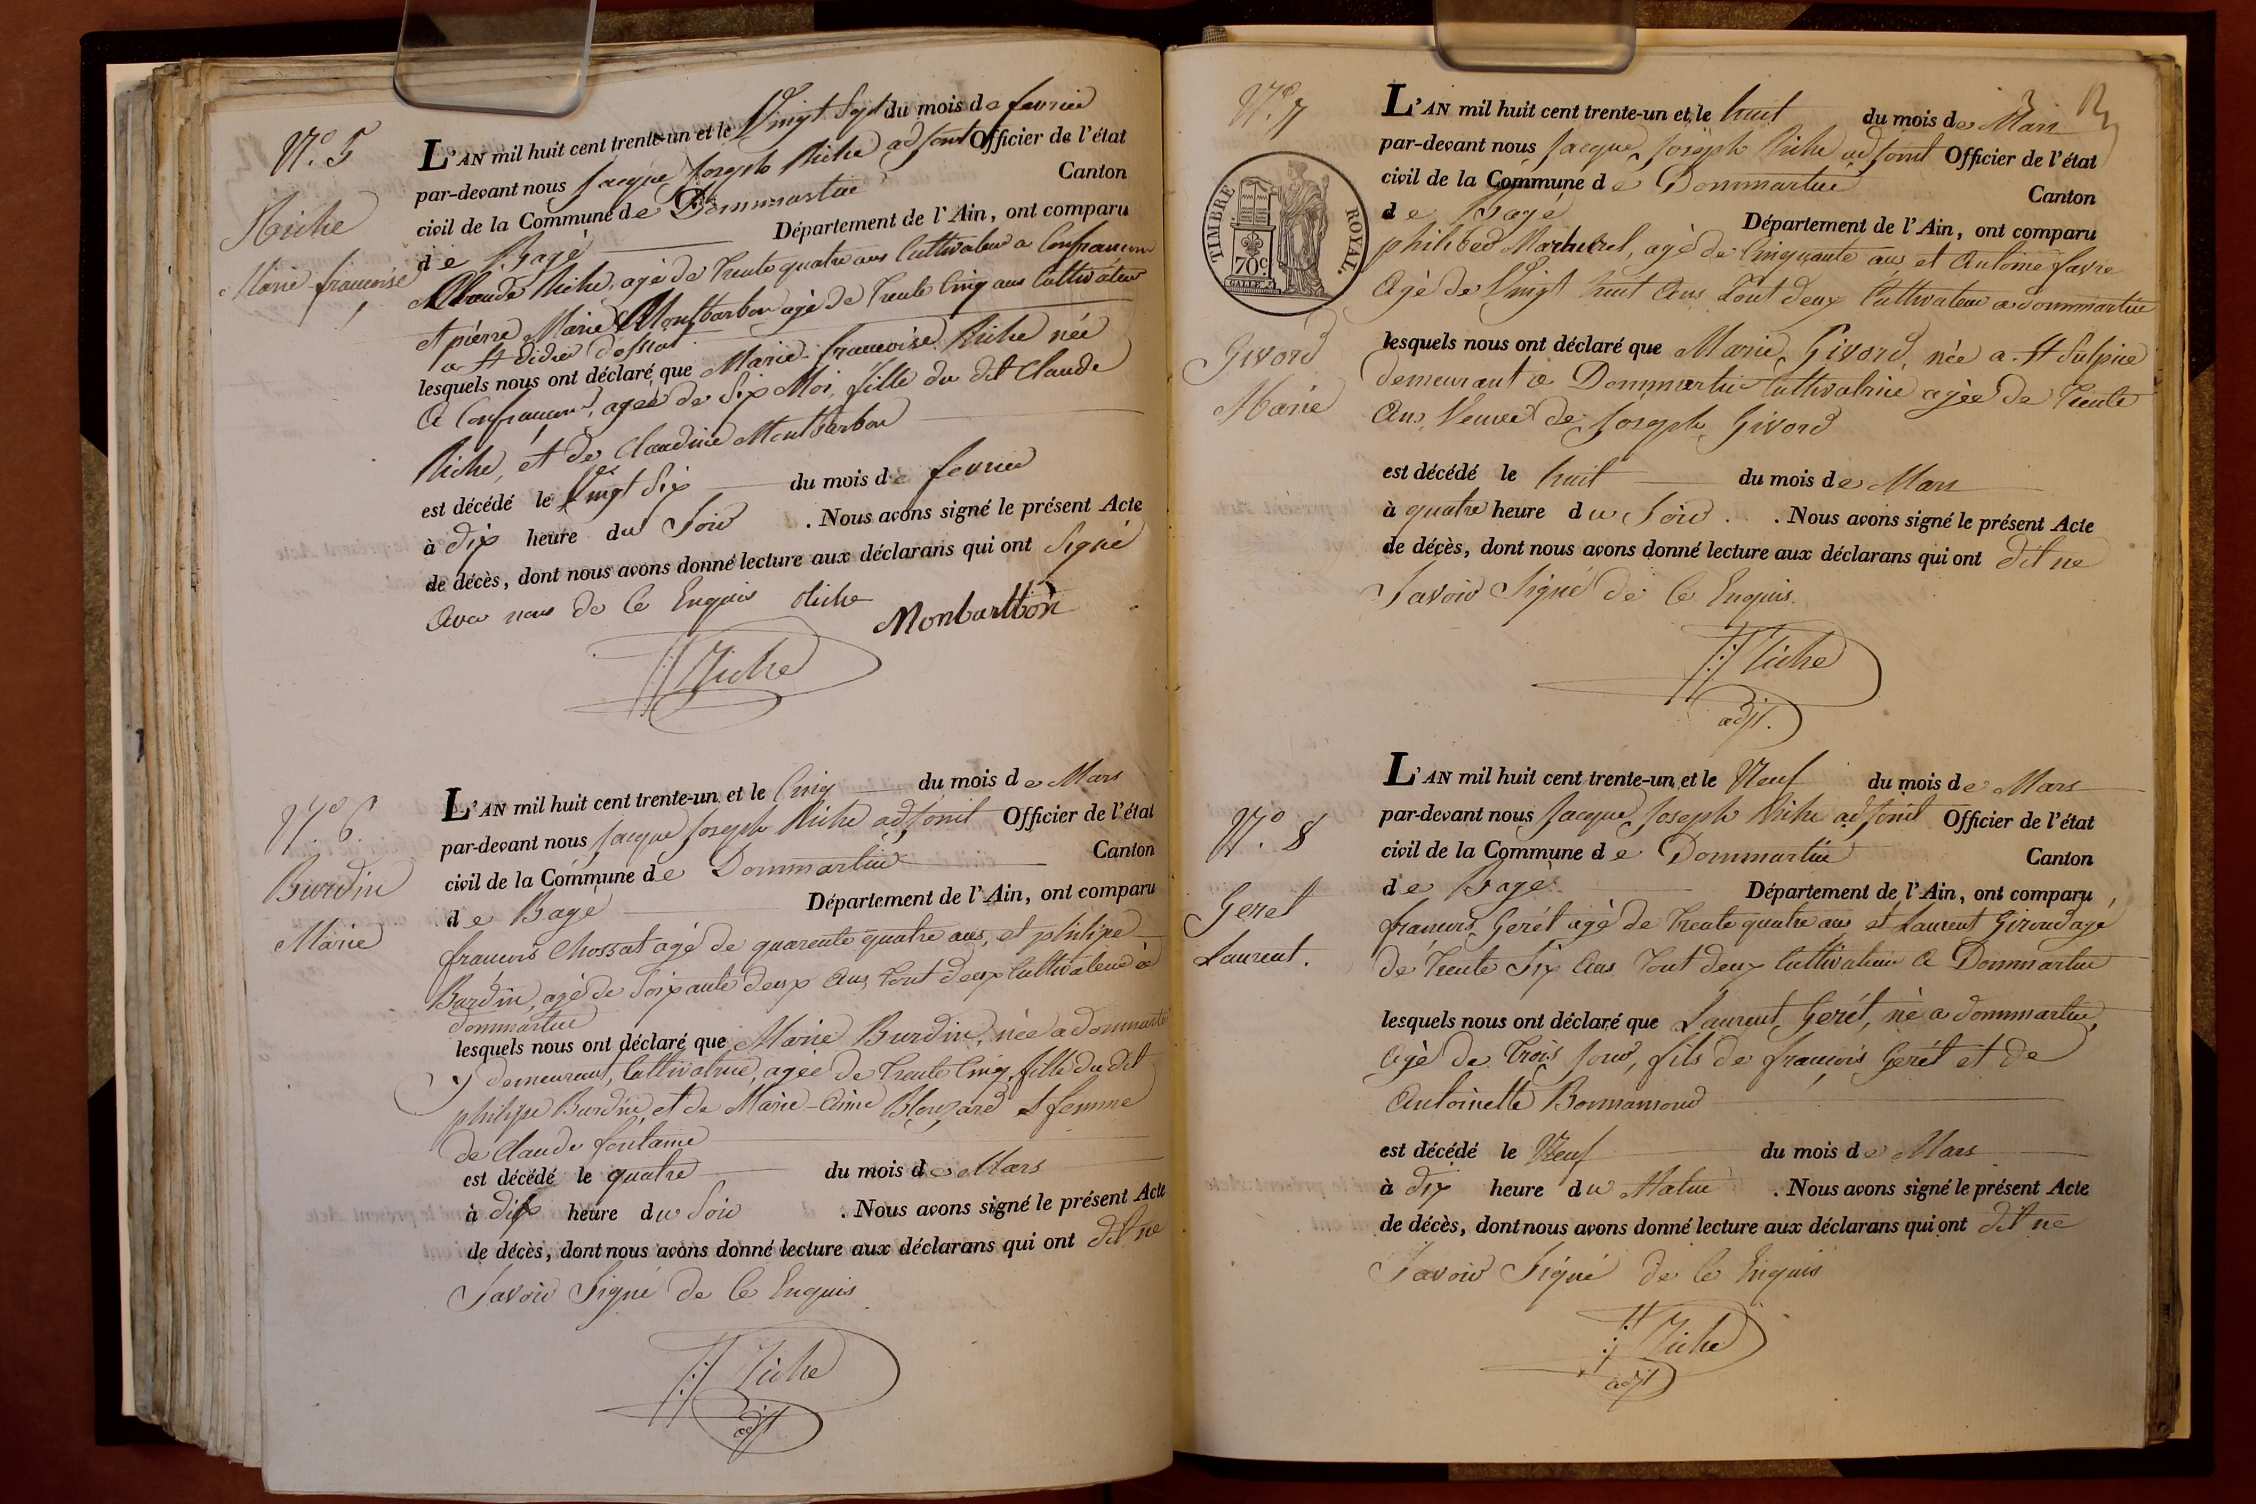 N.° 5
Riche
Marie françoise
L'AN mil huit cent trente-un et le Vingt Sept du mois de fevrier
par-devant nous Jacque Joseph Riche adjoint Officier de l'état
civil de la Commune de Dommartin Canton
de Bagé Département de l'Ain, ont comparu
Claude Riche, agé de trente quatre ans Cultivateur a Confrancon
et pierre Marie Montbarbon agé de trente Cinq ans Cultivateur
a St didier dossiat
lesquels nous ont déclaré que Marie françoise Riche née
a Confrancon, agée de Six Moi, fille du dit Claude
Riche, et de Claudine Montbarbon
est décédé le Vingt Six du mois de fevrier
à dix heure du Soir . Nous avons signé le présent Acte
de décès, dont nous avons donné lecture aux déclarans qui ont Signé
avec nous de Ce Enquis Riche
Monbartbon
Riche
N.° 6.
Burdin
Marie
L'AN mil huit cent trente-un et le Cinq du mois de Mars
par-devant nous Jacque Joseph Riche adjoint Officier de l'état
civil de la Commune de Dommartin Canton
de Bagé Département de l'Ain, ont comparu
francois Chossat agé de quarente quatre ans, et philipe
Burdin, agé de Soixante deux ans tout deux Cultivateur a
dommartin
lesquels nous ont déclaré que Marie Burdin, née a dommartin
y demeurant, Cultivatrice, agée de trente Cinq, fille du dit
philipe Burdin et de Marie-Anne Blouzard & femme
de Claude fontaine
est décédé le quatre du mois de Mars
à dix heure du Soir . Nous avons signé le présent Acte
de décès, dont nous avons donné lecture aux déclarans qui ont dit ne
Savoir Signé de Ce Enquis
Riche
adjt
N.° 7
TIMBRE ROYAL.
70c
Givord
Marie
L'AN mil huit cent trente-un et le huit du mois de Mars
par-devant nous Jacque Joseph Riche adjoint Officier de l'état
civil de la Commune de Dommartin Canton
de Bagé Département de l'Ain, ont comparu
philibert Marhurel, agé de Cinquante ans et Antoine favre
agé de Vingt huit ans tout deux Cultivateur a dommartin
lesquels nous ont déclaré que Marie Givord née a St Sulpice
demeurant a Dommartin Cultivatrice agée de trente
ans, Veuve de Joseph Givord
est décédé le huit du mois de Mars
à quatre heure du Soir . Nous avons signé le présent Acte
de décès, dont nous avons donné lecture aux déclarans qui ont dit ne
Savoir Signé de Ce Enquis.
Riche
adjt.
N.° 8
Geret
Laurent.
L'AN mil huit cent trente-un et le Neuf du mois de Mars
par-devant nous Jacque Joseph Riche adjoint Officier de l'état
civil de la Commune de Dommartin Canton
de Bagé Département de l'Ain, ont comparu
francois Gerét agé de trente quatre ans et Laurent Giroud agé
de trente Six ans tout deux Cultivateur a Dommartin
lesquels nous ont déclaré que Laurent Gerét, né a dommartin,
agé de trois jour, fils de francois Gerét et de
Antoinette Bonnamond
est décédé le Neuf du mois de Mars
à dix heure du Matin . Nous avons signé le présent Acte
de décès, dont nous avons donné lecture aux déclarans qui ont dit ne
Savoir Signé de Ce Enquis
Riche
adjt